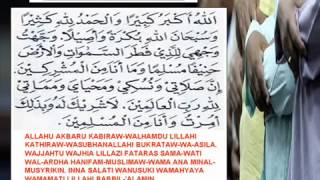 اَللهُ اَكْبَرُ كَبِيْرًا وَالْحَمْدُ لِلّٰهِ كَثِيْرًا
وَسُبْحَانَ اللهِ بُكْرَةً وَاَصِيْلًا. وَجَّهْتُ
وَجْهِيَ لِلَّذِيْ فَطَرَ السَّمٰوَاتِ وَالْاَرْضَ
حَنِيْفًا مُسْلِمًا وَمَا اَنَا مِنَ الْمُشْرِكِيْنَ.
اِنَّ صَلَاتِيْ وَنُسُكِيْ وَمَحْيَايَ وَمَمَاتِيْ
لِلّٰهِ رَبِّ الْعَالَمِيْنَ. لَا شَرِيْكَ لَهُ وَبِذٰلِكَ
اُمِرْتُ وَاَنَا مِنَ الْمُسْلِمِيْنَ.
ALLAHU AKBARU KABIRAW-WALHAMDU LILLAHI
KATHIRAW-WASUBHANALLAHI BUKRATAW-WA-ASILA.
WAJJAHTU WAJHIA LILLAZI FATARAS SAMA-WATI
WAL-ARDHA HANIFAM-MUSLIMAW-WAMA ANA MINAL-
MUSYRIKIN. INNA SALATI WANUSUKI WAMAHYAYA
WAMAMATI LILLAHI RABBIL-'ALAMIN.